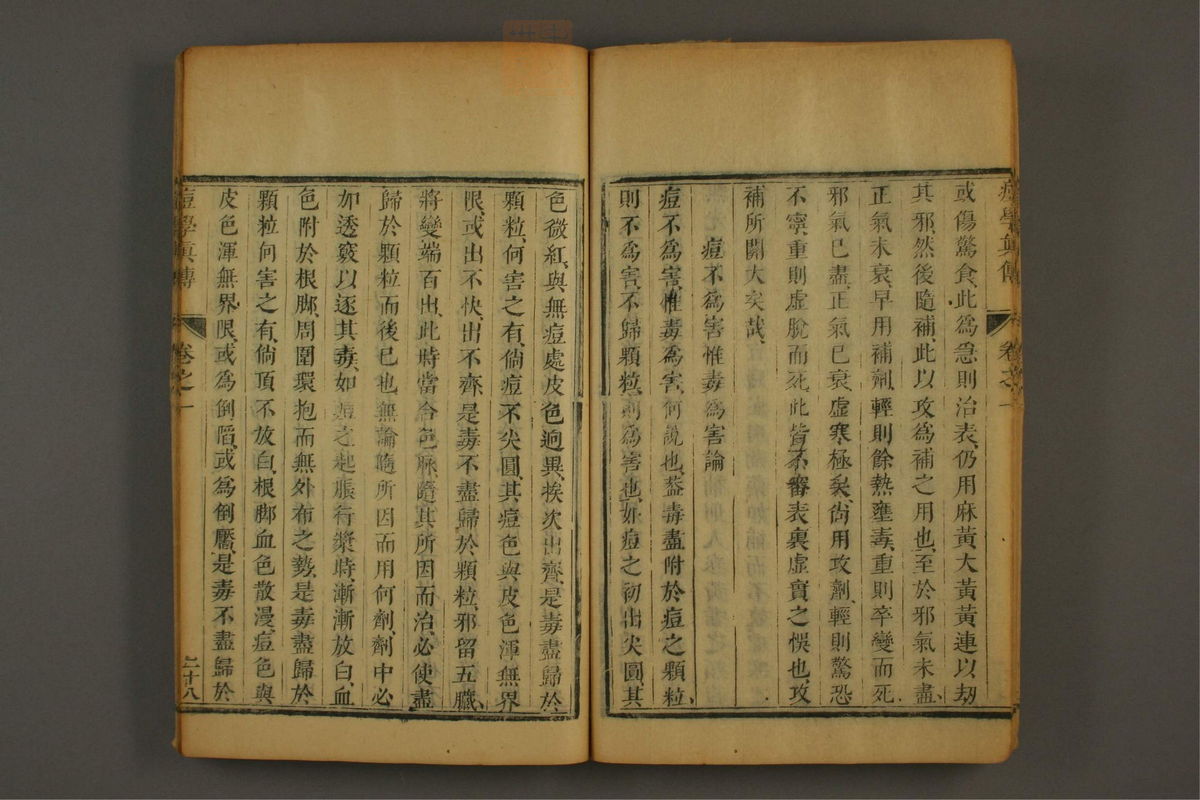 痘學眞傳 卷之一
或傷驚食、此爲急則治表、仍用麻黃大黃黃連以刼
其邪、然後隨補、此以攻爲補之用也、至於邪氣未盡、
正氣未衰、早用補劑、輕則餘熱壅毒、重則卒變而死、
邪氣已盡、正氣已衰、虛寒極矣、尙用攻劑、輕則驚恐
不寧、重則虛脫而死、此皆不審表裏虛實之悞也、攻
補所關大矣哉、
痘不爲害惟毒爲害論
痘不爲害、惟毒爲害、何說也、葢毒盡附於痘之顆粒、
則不爲害、不歸顆粒、則爲害也、如痘之初出尖圓、其
色微紅、與無痘處皮色逈異、挨次出齊、是毒盡歸於
顆粒、何害之有、倘痘不尖圓、其痘色與皮色渾無界
限、或出不快、出不齊、是毒不盡歸於顆粒、邪留五臟、
將變端百出、此時當合色脉、隨其所因而治、必使盡
歸於顆粒而後已也、無論隨所因而用何劑、劑中必
加透竅以逐其毒、如痘之起脹行漿時、漸漸放白、血
色附於根脚、周圍環抱、而無外布之勢、是毒盡歸於
顆粒、何害之有、倘頂不放白、根脚血色散漫、痘色與
皮色渾無界限、或爲倒陷、或爲倒靨、是毒不盡歸於
痘學眞傳 卷之一 二十八